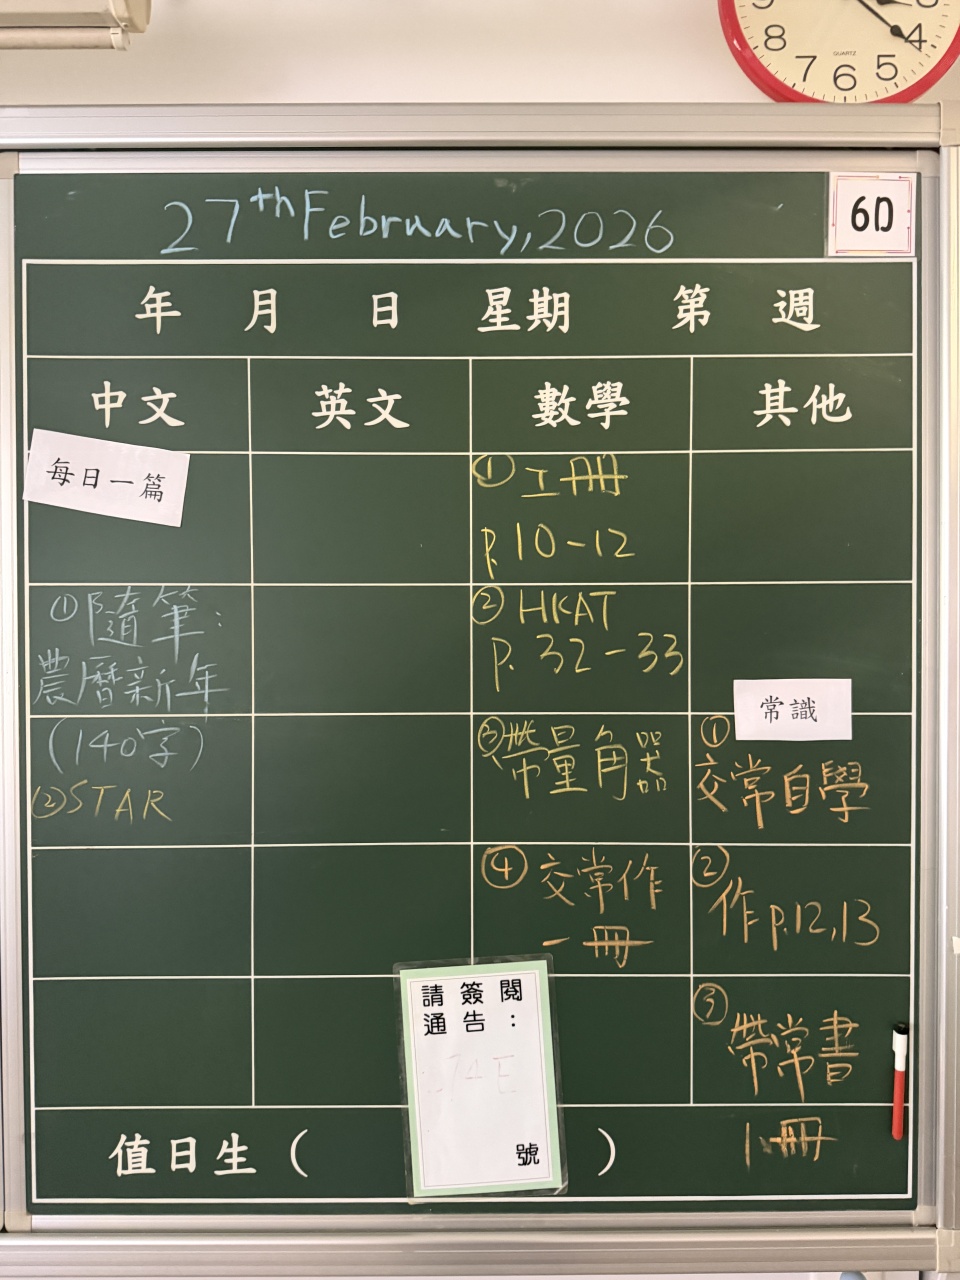 9
8
7
6
5
4
3
QUARTZ
27th February, 2026
6D
年 月 日 星期 第 週
中文 英文 數學 其他
每日一篇
①隨筆:
農曆新年
(140字)
②STAR
① 工冊
p.10-12
② HKAT
p.32-33
③帶量角器
④交常作
一冊
常識
①
交常自學
②
作p.12,13
③
帶常書
1冊
請簽閱
通告:
74E
號
值日生( )